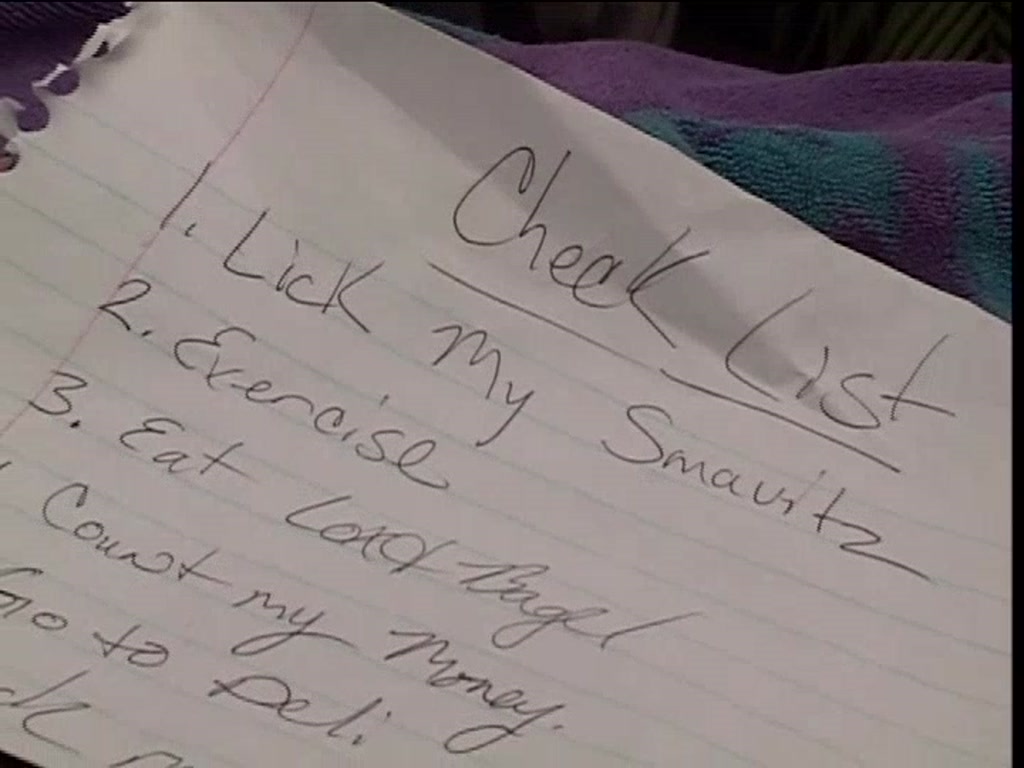 Check List
1. Lick My Smavitz
2. Exercise
3. Eat Lox & Bagel
Count my Money.
Go to Deli